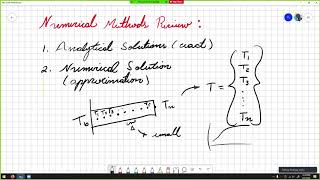 Numirical Methods Review:
1. Analytical Solutions (exact)
2. Numirical Solution
(approximation)
T_b T_1 T_2 T_3 T_n
Δ small
T = { T_1 T_2 T_3 ⋮ T_n }